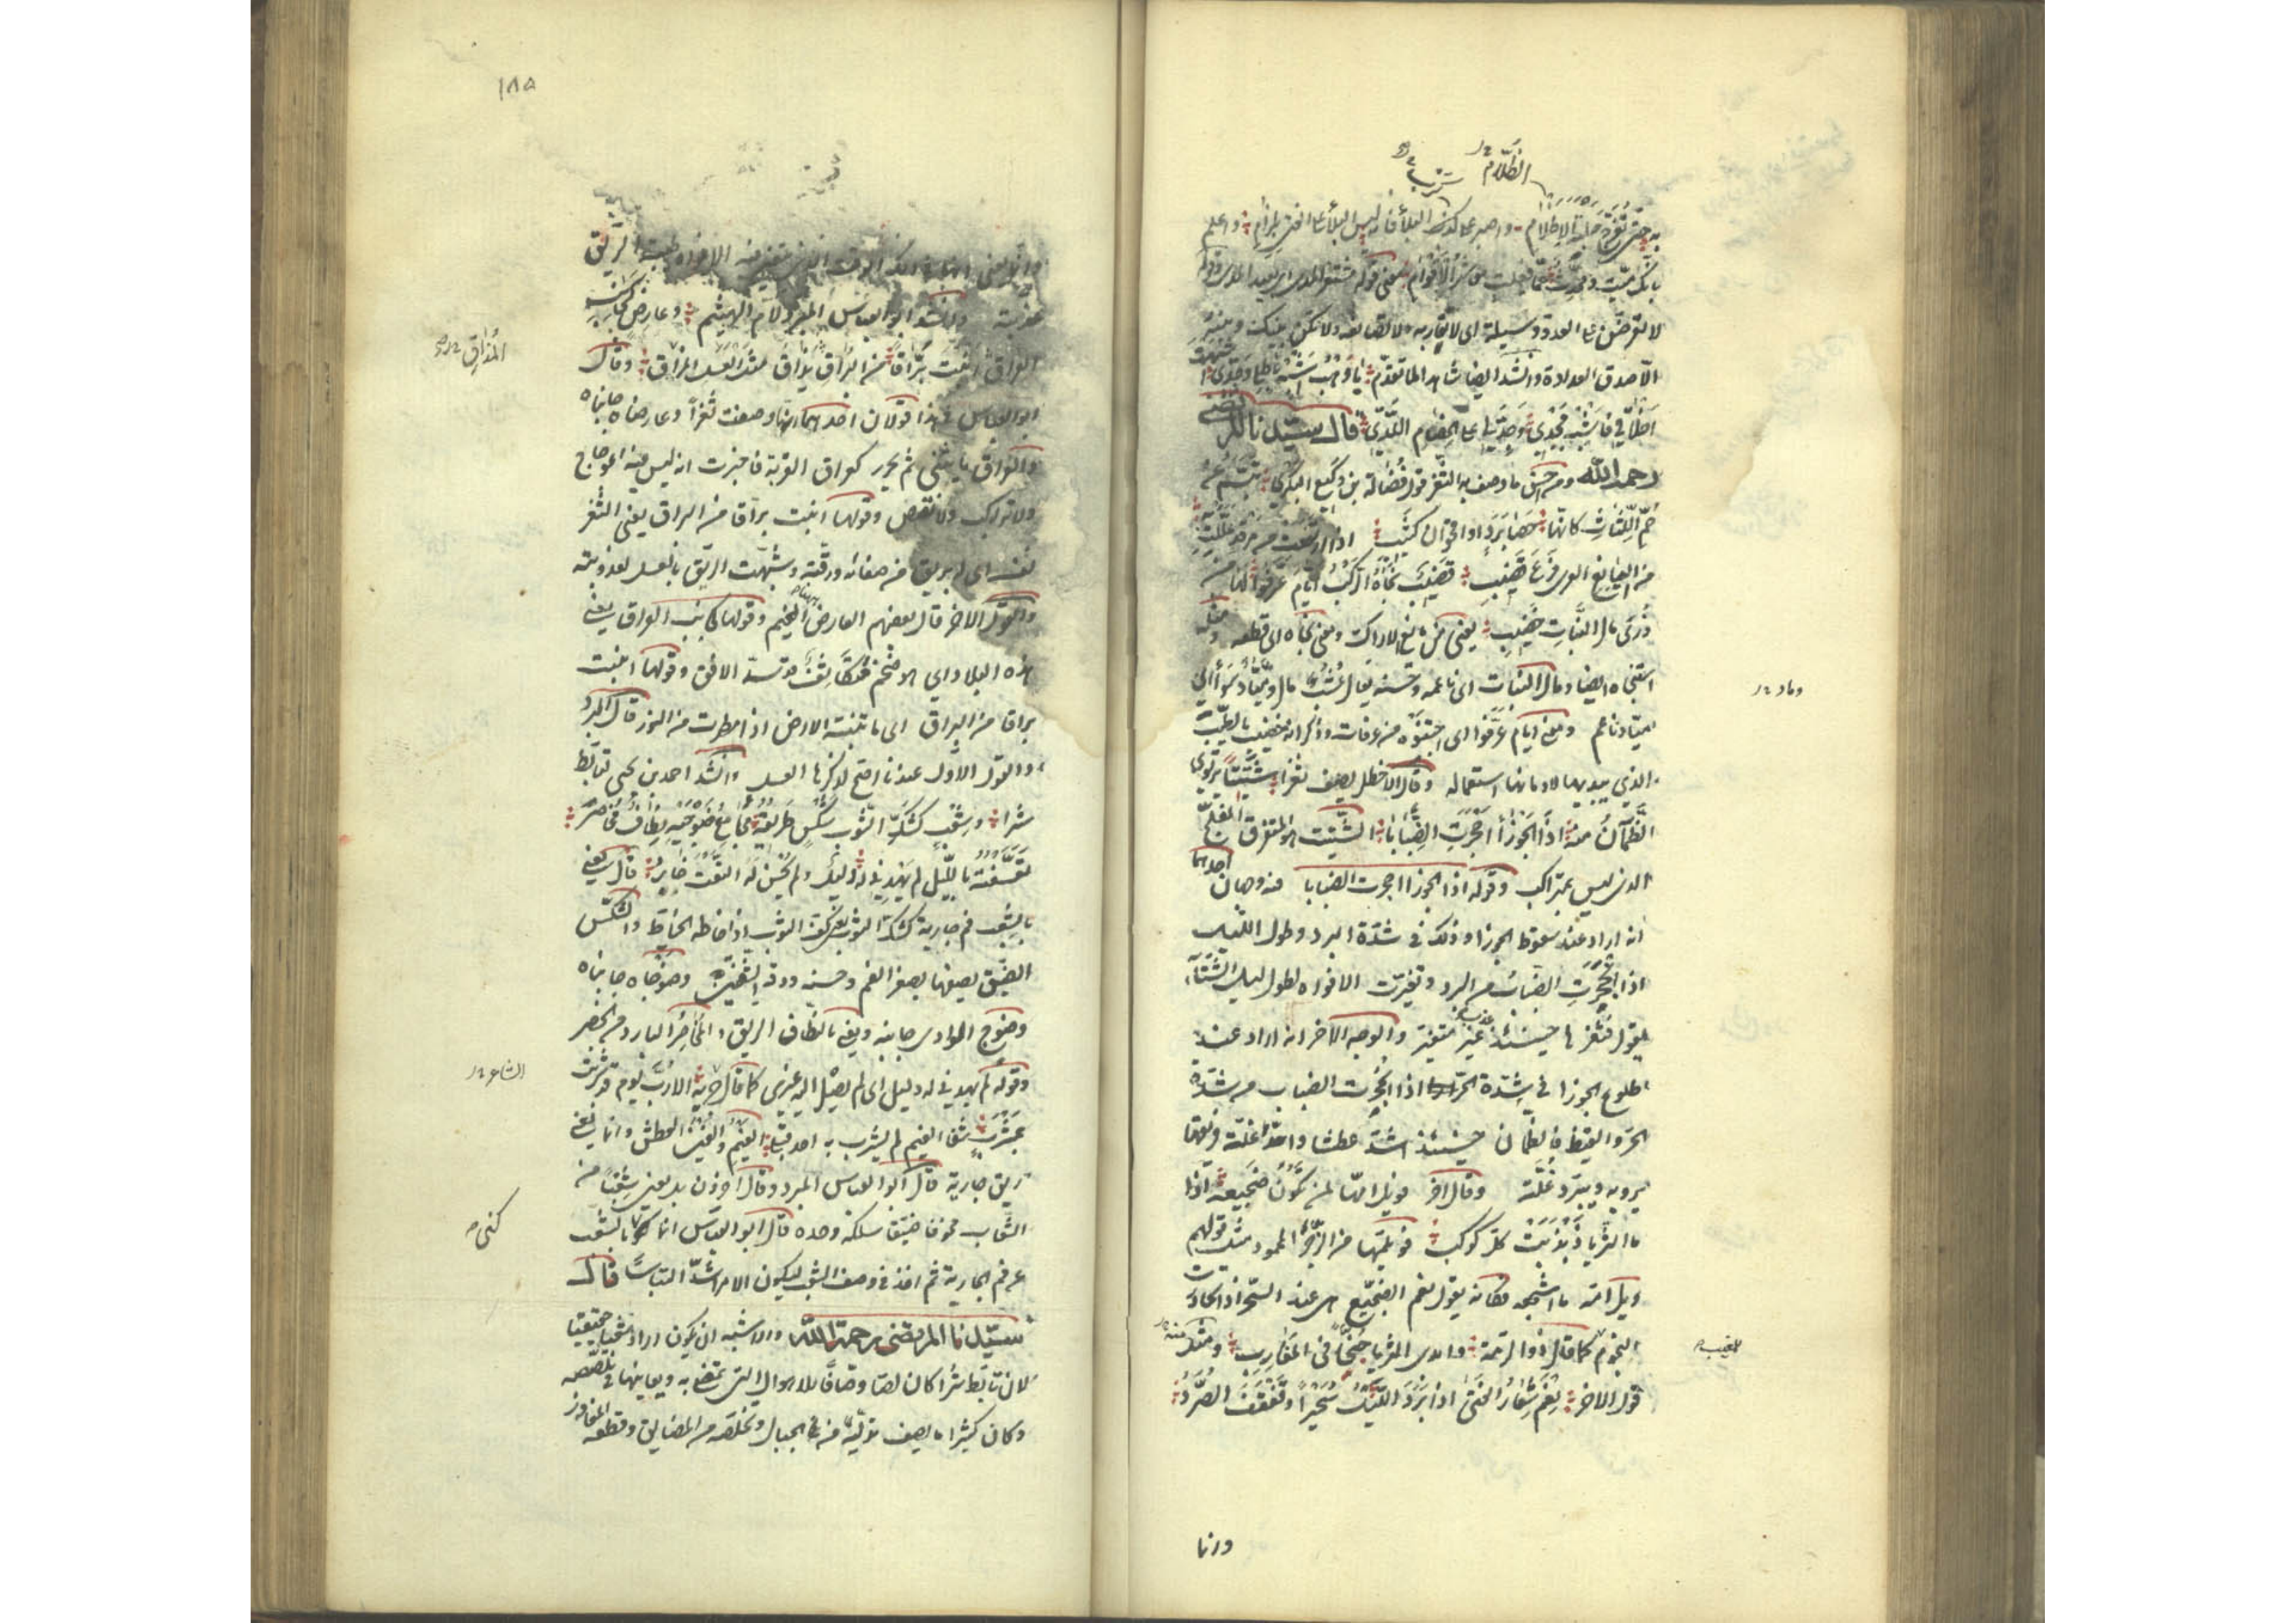 الظلام
به حتى تفرج حالة الاظلام واصبر على كرب البلاء فانه ليس البلاء على الفتى بلزام واعلم
بانك ميت ومحدث عما فعلت معاشر الاقوام معنى قوله
لا تعرضن على العدو وسيلة اى لا تقاربه ولا تصانعه ولا تكن بينك وبينه
الا صدق العداوة وانشد ايضا شاهدا لما تقدم
قال سيدنا المرتضى
رحمه الله ومن حسن ما وصف به الثغر قول فضالة بن وكيع البكرى تبسم عن
حم اللثات كانها حصا برد او اقحوان كثيب اذا ارتفعت عن مرقد عللت به
من اليانع الغورى فرع قضيب قضيب نجاه الركب ايام عرفوا لها من
ذرى مال النبات خضيب يعنى من يانع الاراك ومعنى نجاه اى قطعه ومثله
استنجاه ايضا ومال النبات اى ناعمه وحسنه يقال عشب مال ومياد سواء اى
مياد ناعم ومعنى ايام عرفوا اى اجتنوه من عرفات وذكر انه مخضب بالطيب
الذي بيديها لادمانها استعماله وقال الاخطل يصف ثغرا شتيتا يرتوى
الظمآن منه اذا الجوزاء اجحرت الضبابا الشتيت هو المتفرق المفلج
الذى ليس بمتراكب وقوله اذا الجوزا اجحرت الضبابا فيه وجهان احدهما
انه اراد عند سقوط الجوزا وذلك فى شدة البرد وطول الليل
اذا انجحرت الضباب من البرد وتغيرت الافواه لطول ليل الشتاء
يقول فثغرها حينئذ عذب غير متغير والوجه الاخر انه اراد عند
طلوع الجوزا فى شدة الحر اذا انجحرت الضباب من شدة
الحر والقيظ فالظمان حينئذ اشد عطشا واحر غلة فريقها
يرويه ويبرد غلته وقال اخر فويل امها لمن تكون ضجيعه اذا
ما الثريا ذبذبت كل كوكب فويلمها من الزجر المحمود مثل قولهم
ويل امه ما اشجعه فكانه يقول نعم الضجيع هى عند السحر اذا تحادرت
النجوم كما قال ذو الرمة وايدى الثريا جنح فى المغارب ومثله
قول الاخر نعم شعار الفتى اذا برد الليل سحيرا وقفقف الصرد
وماد
للمغيب
وانما
١٨٥
وانما يعنى انها فى ذلك الوقت الذى تتغير فيه الافواه طيبة الريق
عذبة وانشد ابو العباس المبرد لام الهيثم وعارض كجانب
العراق انبت براقا من البراق يذاق مثل العسل المذاق وقال
ابو العباس فى هذا قولان احدهما انها وصفت ثغرا وعارضاه جانباه
والعراق ما يثنى ثم يخرز كعراق القربة فاخبرت انه ليس فيه اعوجاج
ولا تراكب ولا نقص وقولها انبت براقا من البراق يعنى الثغر
نفسه اى له بريق من صفائه ورقته وشبهت الريق بالعسل لعذوبته
والقول الاخر قال بعضهم العارض هاهنا الغيم وقولها كجانب العراق يعنى
هذه البلاد اى هو ضخم متكاثف قد سد الافق وقولها انبت
براقا من البراق اى ما تنبته الارض اذا مطرت من النور قال المبرد
والقول الاول عندنا اصح لذكرها العسل وانشد احمد بن يحيى لتابط
شرا وشعب كشك الثوب شكس طريقه مجامع ضوجيه نطاف مخاصر
تعسفته بالليل لم يهدنى له دليل ولم يحسن له النعت خابر قال يعنى
بالشعب فم جارية كشك الثوب يعنى كف الثوب اذا خاطه الخياط والشكس
الضيق يصفها بصغر الفم وحسنه ورقة الشفتين وضوجاه جانباه
وضوج الوادى جانبه ويعنى بالنطاف الريق والمخاصر البارد من الخصر
وقوله لم يهدنى له دليل اى لم يصل اليه غيرى كما قال جرير الا رب يوم قد شربت
بمشرب شفا الغيم لم يشرب به احد قبلى الغيم والغين العطش وانما يعنى
ريق جارية قال ابو العباس المبرد وقال اخرون بل يعنى شعبا من
الشعاب مخوفا ضيقا سلكه وحده قال ابو العباس انما كنى بالشعب
عن فم الجارية ثم اخذ فى وصف الشعب ليكون الامر اشد التباسا قال
سيدنا المرتضى رحمه الله والاشبه ان يكون اراد شعبا حقيقيا
لان تابط شرا كان لصا وصافا للاهوال التى تمضى به ويعاينها فى تلصصه
وكان كثيرا ما يصف تدليه من الجبال وتخلصه من المضايق وقطعه المفاوز
المذاق
الشاعر
كنى